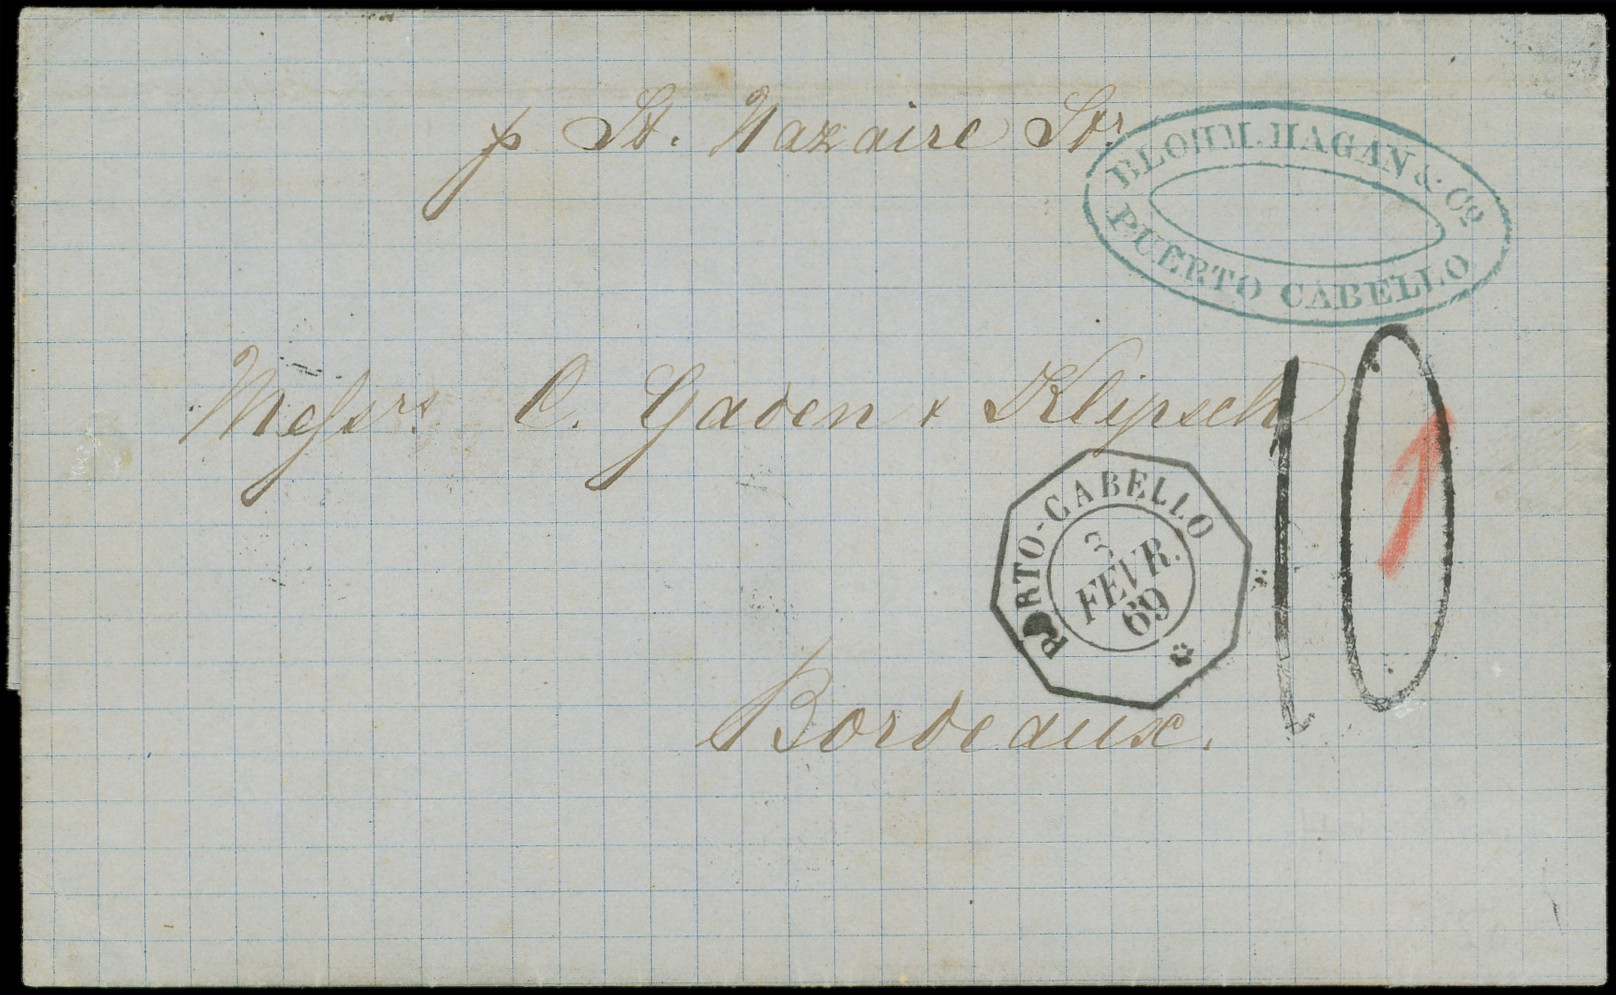 p St. Nazaire Str
BLOHM. HAGAN & Co
PUERTO CABELLO
Messrs. C. Gaden & Klipsch
PORTO-CABELLO
3
FEVR.
69
10
1
Bordeaux.